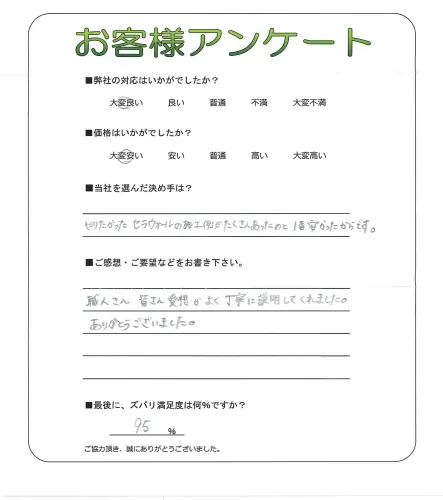 お客様アンケート
■弊社の対応はいかがでしたか？
大変良い 良い 普通 不満 大変不満
■価格はいかがでしたか？
大変安い 安い 普通 高い 大変高い
■当社を選んだ決め手は？
やりたかった セラウォールの施工例がたくさんあったのと 1番安かったからです。
■ご感想・ご要望などをお書き下さい。
職人さん 皆さん愛想がよく 丁寧に説明してくれました。
ありがとうございました。
■最後に、ズバリ満足度は何%ですか？
95 %
ご協力頂き、誠にありがとうございました。